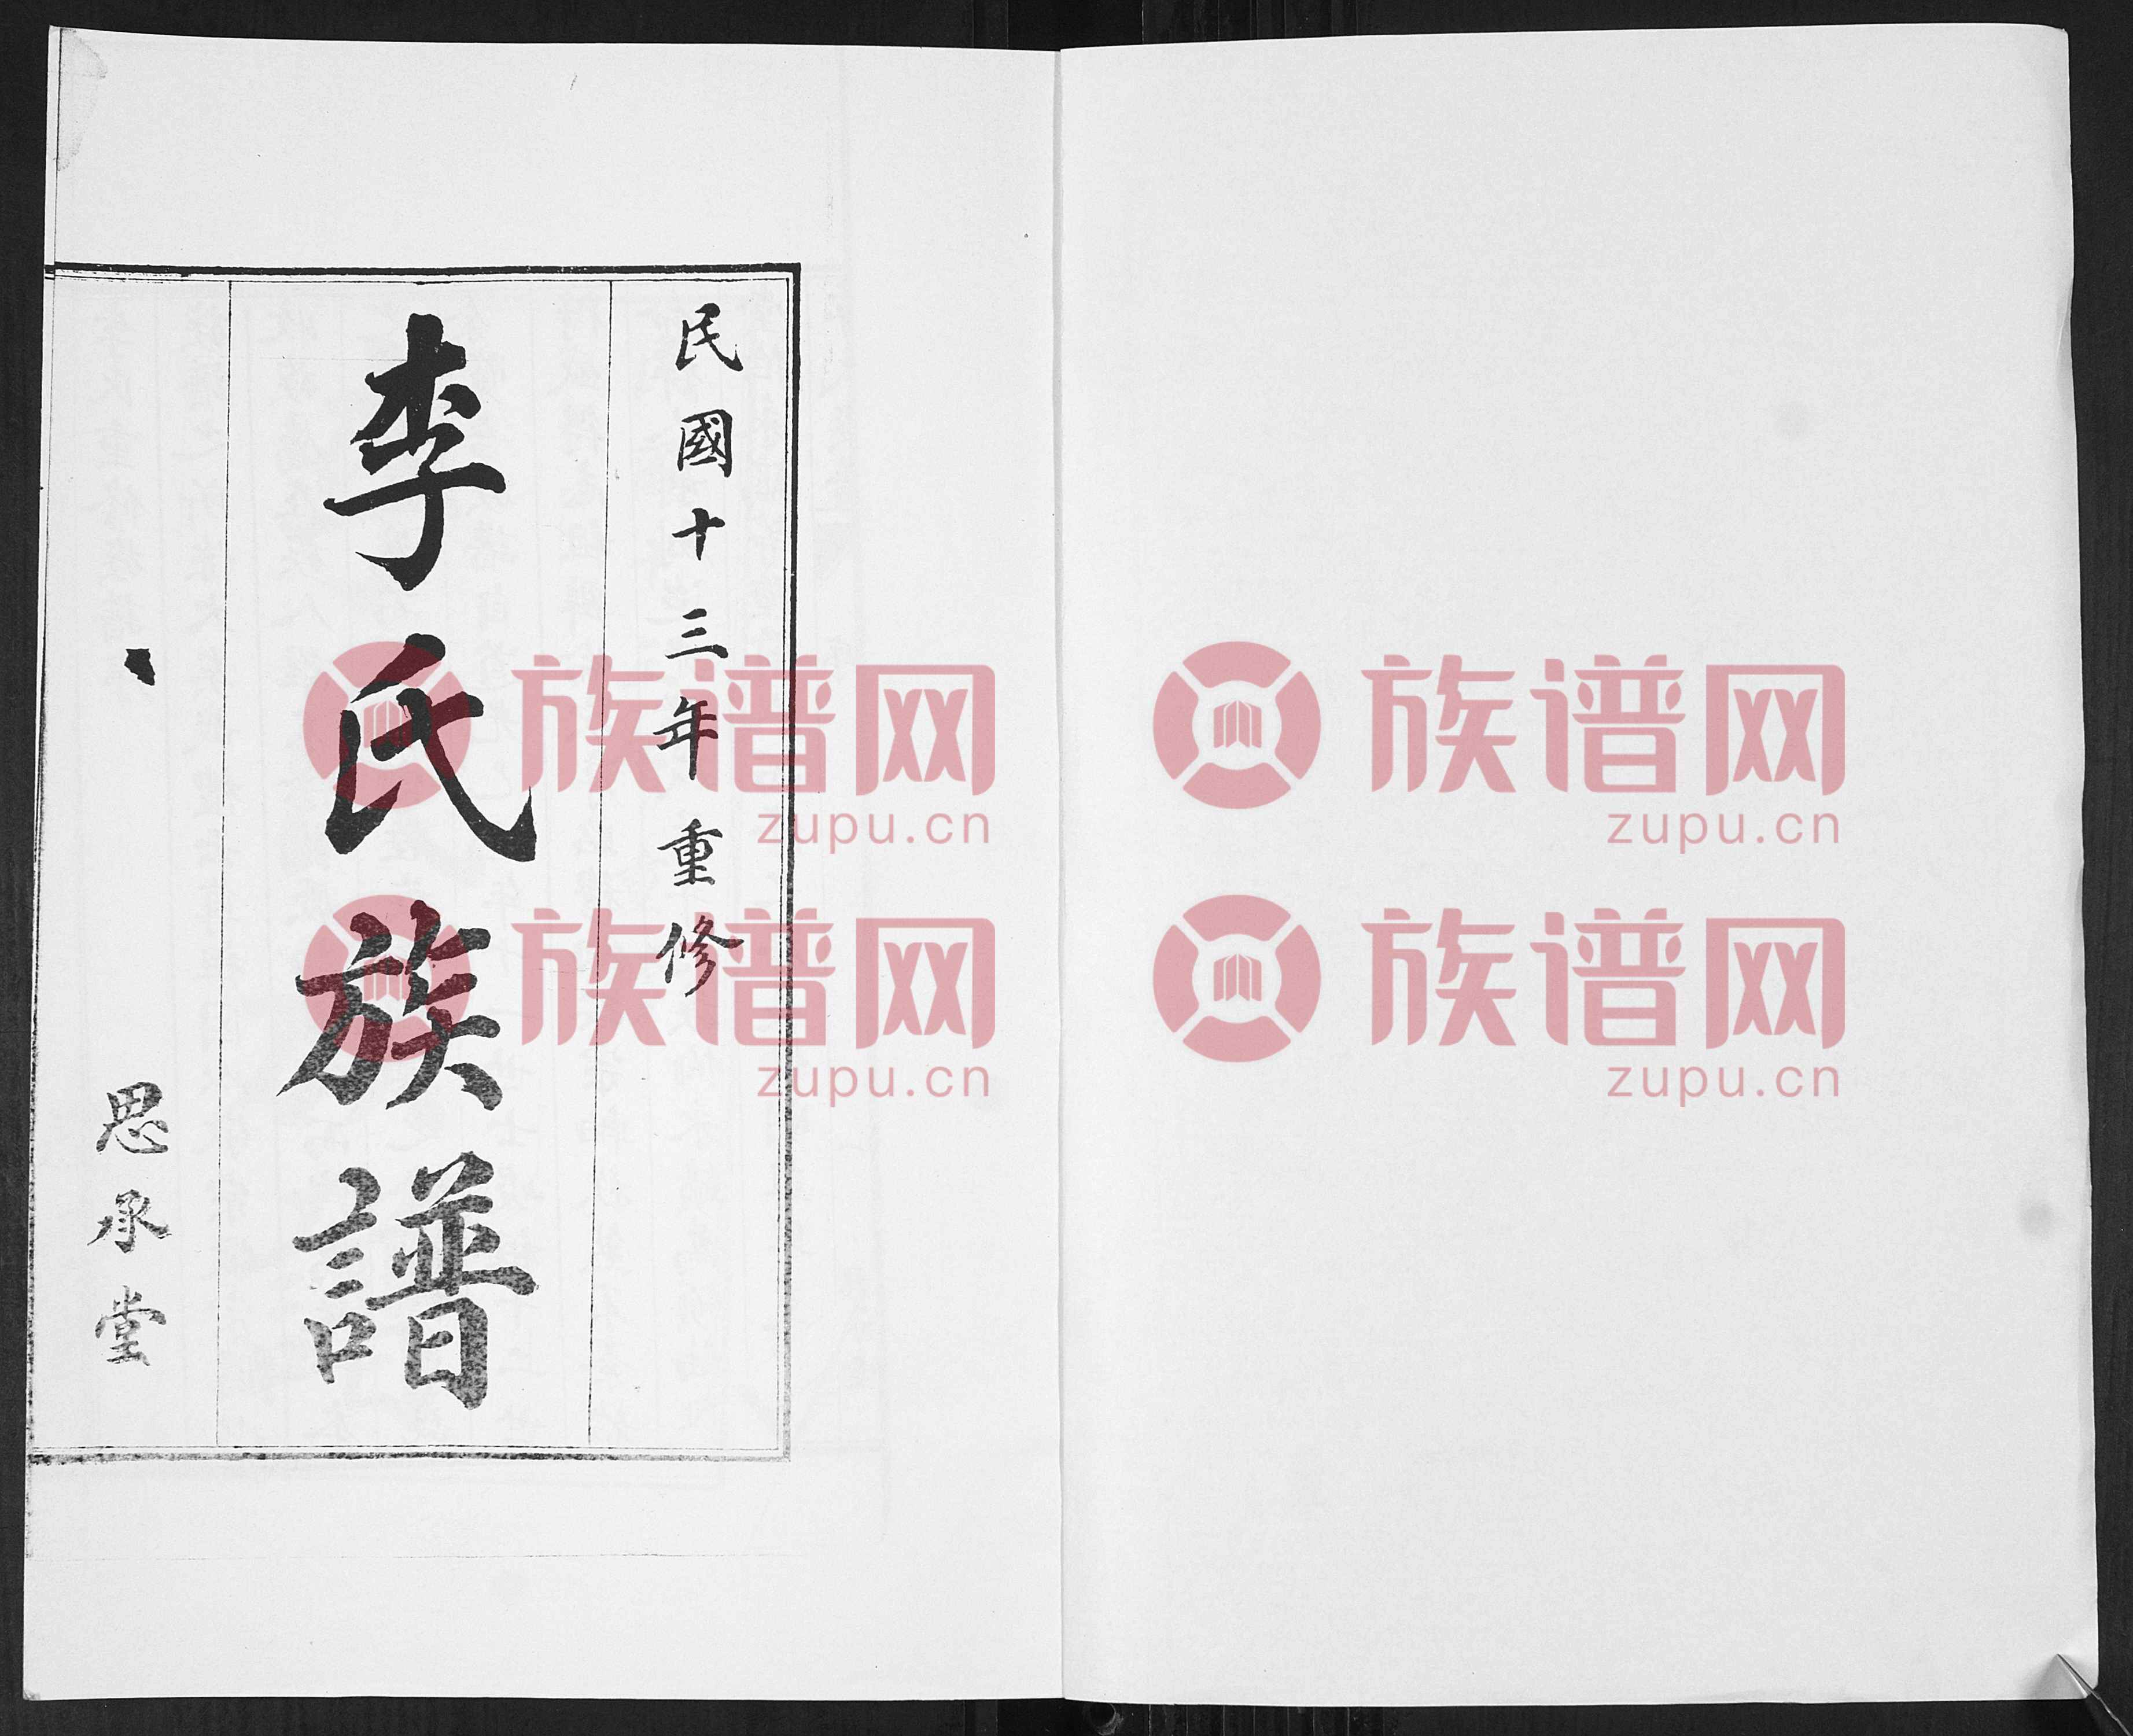 民國十三年重修
李氏族譜
思承堂
族谱网
zupu.cn
族谱网
zupu.cn
族谱网
zupu.cn
族谱网
zupu.cn